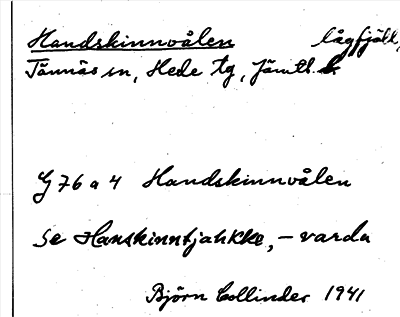 Handskinnvålen lågfjäll,
Tännäs sn, Hede tg, Jämtl. l.
G 76 a 4 Handskinnvålen
se Hanskinntjahkke, - varda
Björn Collinder 1941